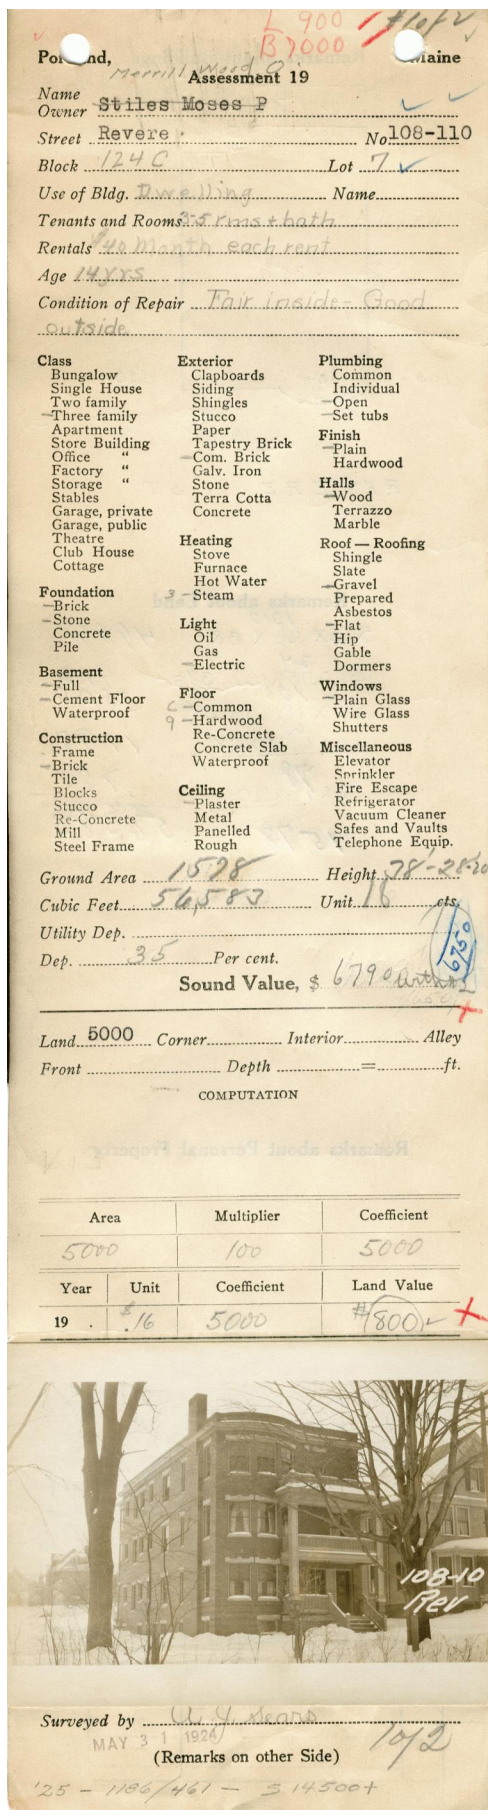 L 900
B 7000
#1 of 2
Portland, Maine
Merrill Wood O.
Assessment 19
Name
Owner Stiles Moses P
Street Revere No. 108-110
Block 124 C Lot 7
Use of Bldg. Dwelling Name
Tenants and Rooms 3-5 rms + bath
Rentals $40 Month each rent
Age 14 yrs
Condition of Repair Fair inside - Good
outside
Class
Bungalow
Single House
Two family
- Three family
Apartment
Store Building
Office "
Factory "
Storage "
Stables
Garage, private
Garage, public
Theatre
Club House
Cottage
Foundation
- Brick
- Stone
Concrete
Pile
Basement
- Full
- Cement Floor
Waterproof
Construction
Frame
- Brick
Tile
Blocks
Stucco
Re-Concrete
Mill
Steel Frame
Exterior
Clapboards
Siding
Shingles
Stucco
Paper
Tapestry Brick
- Com. Brick
Galv. Iron
Stone
Terra Cotta
Concrete
Heating
Stove
Furnace
Hot Water
3 - Steam
Light
Oil
Gas
- Electric
Floor
C - Common
9 - Hardwood
Re-Concrete
Concrete Slab
Waterproof
Ceiling
- Plaster
Metal
Panelled
Rough
Plumbing
Common
Individual
- Open
- Set tubs
Finish
- Plain
Hardwood
Halls
- Wood
Terrazzo
Marble
Roof — Roofing
Shingle
Slate
- Gravel
Prepared
Asbestos
- Flat
Hip
Gable
Dormers
Windows
- Plain Glass
Wire Glass
Shutters
Miscellaneous
Elevator
Sprinkler
Fire Escape
Refrigerator
Vacuum Cleaner
Safes and Vaults
Telephone Equip.
Ground Area 1578 Height 38'-28-20
Cubic Feet 56,583 Unit 16 cts.
Utility Dep.
6750
Dep. 35 Per cent.
Sound Value, $ 6790
Land 5000 Corner Interior Alley
Front Depth = ft.
COMPUTATION
Area Multiplier Coefficient
5000 100 5000
Year Unit Coefficient Land Value
19 . $.16 5000 $800
108-10
Rev
Surveyed by A. J. Sears
MAY 31 1924
(Remarks on other Side)
1 of 2
'25 - 1186/461 - $14500+